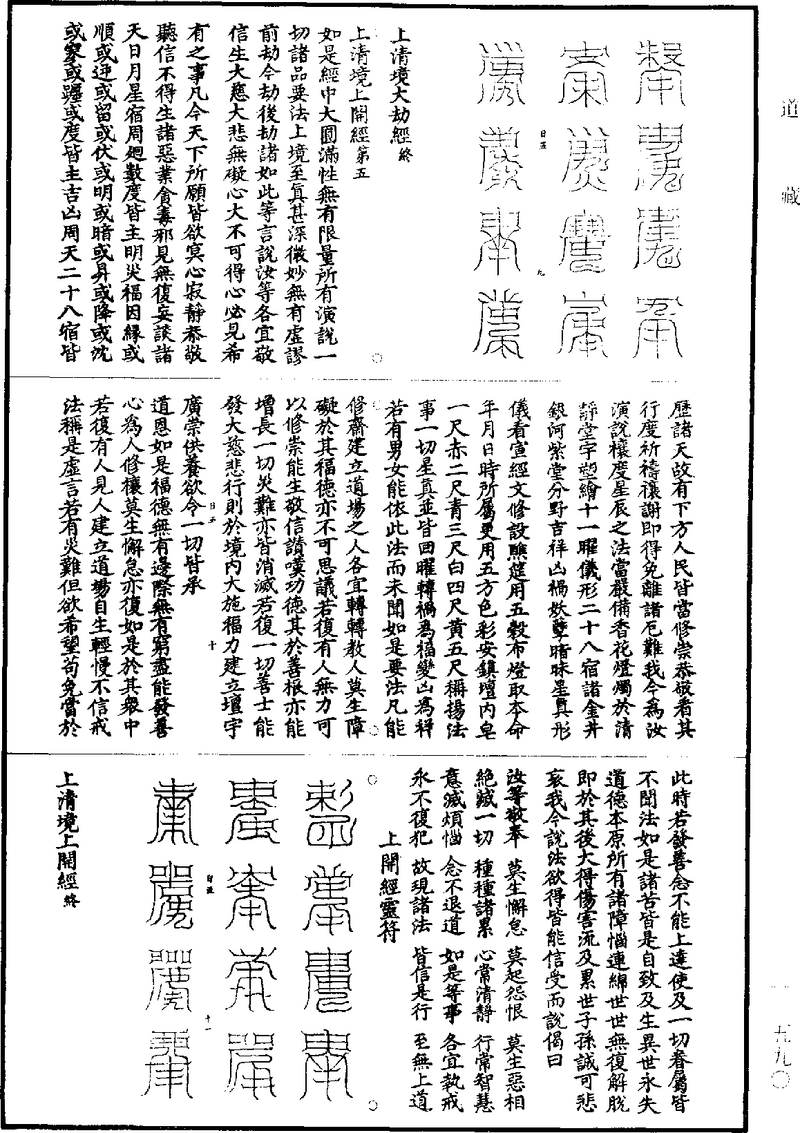 道藏
上清境大劫經終
上清境上開經第五
如是經中大圓滿性無有限量所有演說一
切諸品要法上境至真甚深微妙無有虛謬
前劫今劫後劫諸如此等言說汝等各宜敬
信生大慈大悲無礙心大不可得心必見希
有之事凡今天下所願皆欲冥心寂靜恭敬
聽信不得生諸惡業貪毒邪見無復妄談諸
天日月星宿周迴數度皆主明災福因緣或
順或逆或留或伏或明或暗或昇或降或沈
或寥或躔或度皆主吉凶周天二十八宿皆
歷諸天故有下方人民皆當修崇恭敬看其
行度祈禱禳謝即得免離諸厄難我今為汝
演說禳度星辰之法當嚴備香花燈燭於清
靜堂宇塑繪十一曜儀形二十八宿諸金井
銀河紫堂分野吉祥凶禍妖孽暗昧星真形
儀看宣經文修設醮筵用五穀布燈取本命
年月日時所屬更用五方色彩安鎮壇內皂
一尺赤二尺青三尺白四尺黃五尺稱揚法
事一切星真並皆回曜轉禍為福變凶為祥
若有男女能依此法而未聞如是要法凡能
修齋建立道場之人各宜轉轉教人莫生障
礙於其福德亦不可思議若復有人無力可
以修崇能生敬信讚嘆功德其於善根亦能
增長一切災難亦皆消滅若復一切善士能
發大慈悲行則於境內大施福力建立壇宇
廣崇供養欲令一切皆承
道恩如是福德無有邊際無有窮盡能發善
心為人修禳莫生懈怠亦復如是於其眾中
若復有人見人建立道場自生輕慢不信戒
法稱是虛言若有災難但欲希望苟免當於
此時若發善念不能上達使及一切眷屬皆
不聞法如是諸苦皆是自致及生異世永失
道德本原所有諸障惱連綿世世無復解脫
即於其後大得傷害流及累世子孫誠可悲
哀我今說法欲得皆能信受而說偈曰
汝等敬奉 莫生懈怠 莫起怨恨 莫生惡相
絕滅一切 種種諸累 心常清靜 行常智慧
意滅煩惱 念不退道 如是等事 各宜執戒
永不復犯 故現諸法 皆信是行 至無上道
上開經靈符
上清境上開經終
一五九〇